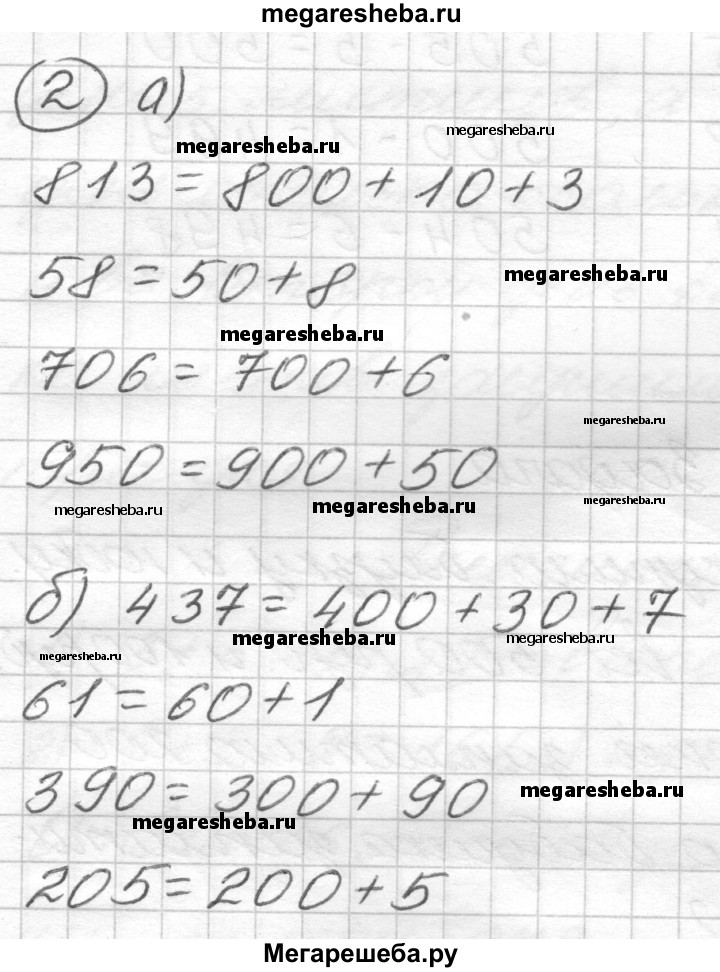 megaresheba.ru
2 а)
megaresheba.ru megaresheba.ru
813 = 800 + 10 + 3
58 = 50 + 8 megaresheba.ru
megaresheba.ru
706 = 700 + 6
megaresheba.ru
950 = 900 + 50
megaresheba.ru megaresheba.ru megaresheba.ru
б) 437 = 400 + 30 + 7
megaresheba.ru megaresheba.ru megaresheba.ru
61 = 60 + 1
390 = 300 + 90 megaresheba.ru
megaresheba.ru
205 = 200 + 5
Мегарешеба.ру